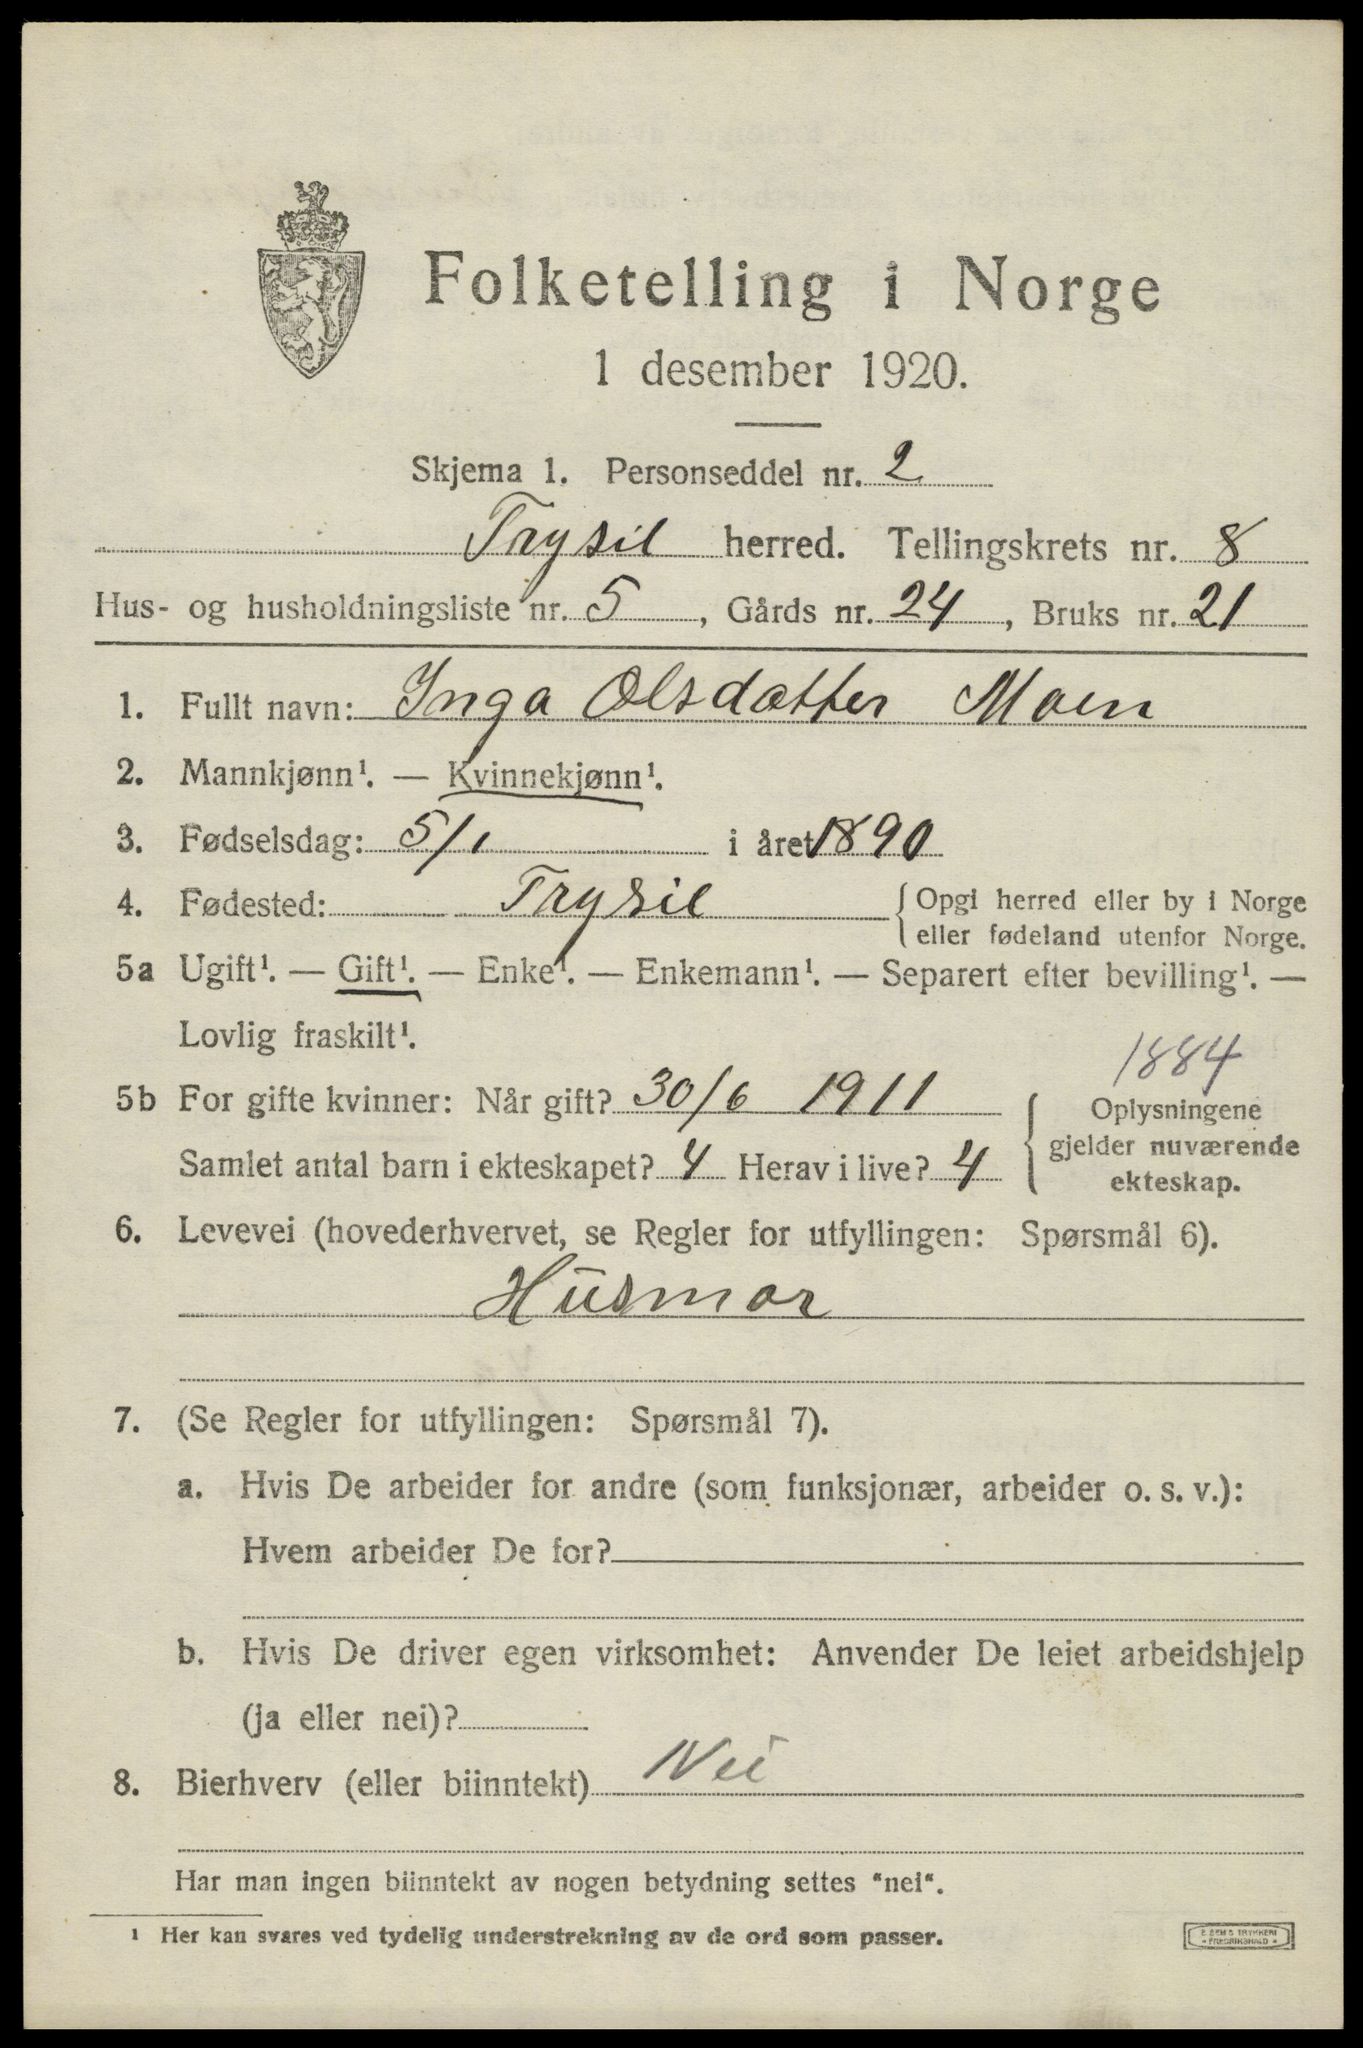 Folketelling i Norge
1 desember 1920.
Skjema 1. Personseddel nr. 2
Trysil herred. Tellingskrets nr. 8
Hus- og husholdningsliste nr. 5, Gårds nr. 24, Bruks nr. 21
1. Fullt navn: Inga Olsdatter Moen
2. Mannkjønn¹. — Kvinnekjønn¹.
3. Fødselsdag: 5/1 i året 1890
4. Fødested: Trysil {Opgi herred eller by i Norge
eller fødeland utenfor Norge.
5a Ugift¹. — Gift¹. — Enke¹. — Enkemann¹. — Separert efter bevilling¹. —
Lovlig fraskilt¹.
1884
5b For gifte kvinner: Når gift? 30/6 1911 { Oplysningene
gjelder nuværende
Samlet antal barn i ekteskapet? 4 Herav i live? 4 ekteskap.
6. Levevei (hovederhvervet, se Regler for utfyllingen: Spørsmål 6).
Husmor
7. (Se Regler for utfyllingen: Spørsmål 7).
a. Hvis De arbeider for andre (som funksjonær, arbeider o. s. v.):
Hvem arbeider De for?
b. Hvis De driver egen virksomhet: Anvender De leiet arbeidshjelp
(ja eller nei)?
8. Bierhverv (eller biinntekt) Nei
Har man ingen biinntekt av nogen betydning settes "nei".
1 Her kan svares ved tydelig understrekning av de ord som passer.
E SEM'S TRYKKERI
• FREDRIKSHALD •